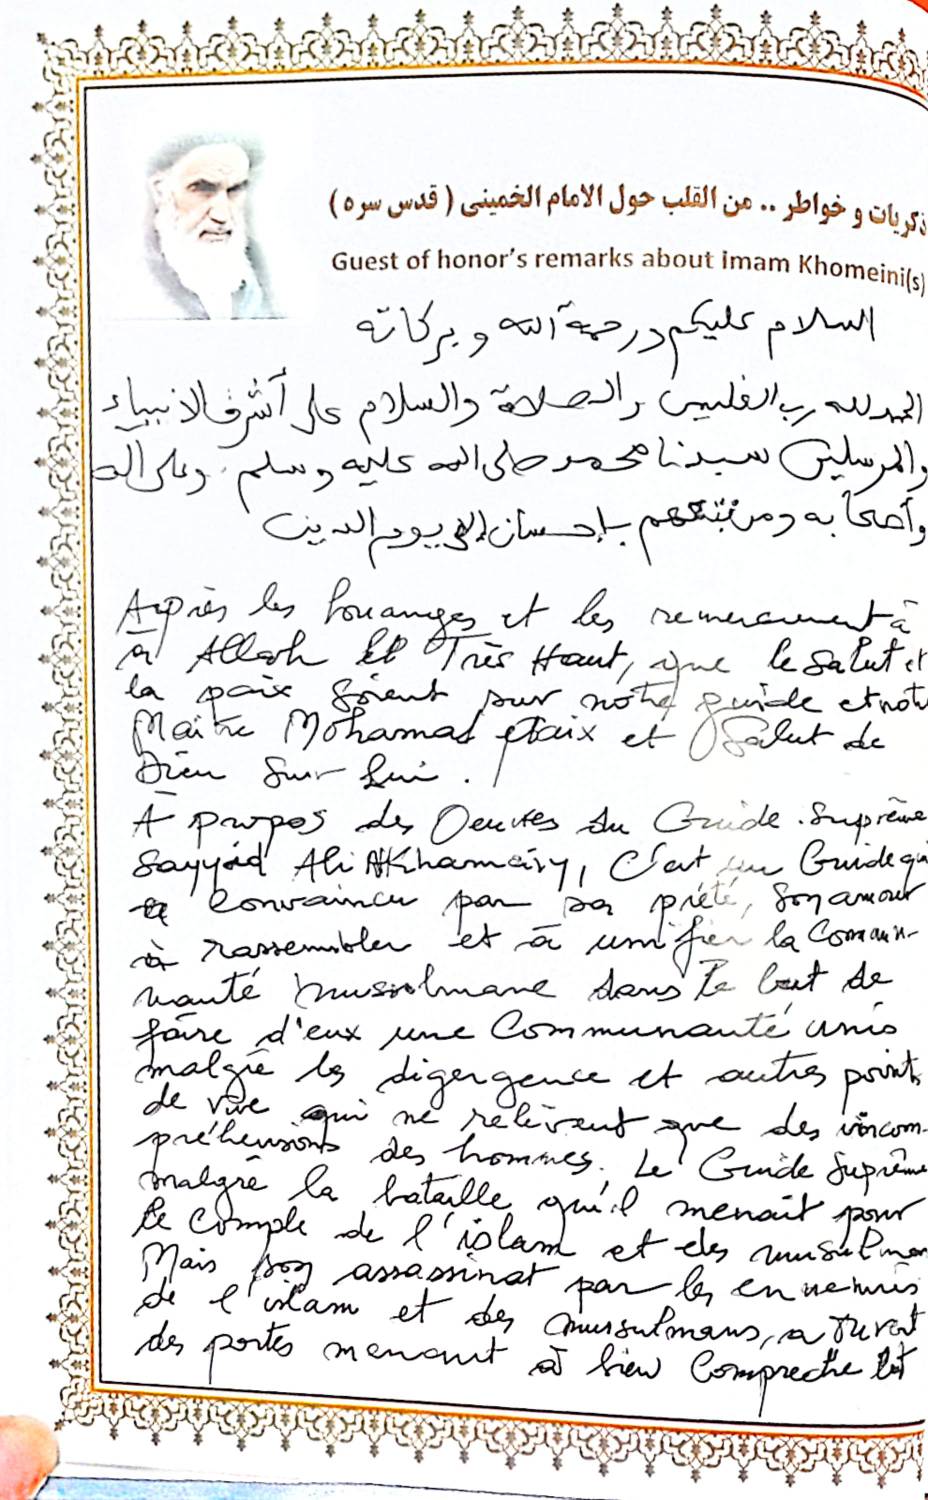 ذكريات و خواطر .. من القلب حول الامام الخميني ( قدس سره )
Guest of honor's remarks about imam Khomeini(s)
السلام عليكم ورحمة الله وبركاته
الحمد لله رب العلمين والصلاة والسلام على أشرف الانبياء
والمرسلين سيدنا محمد صلى الله عليه وسلم وعلى اله
وأصحابه ومن تبعهم بإحسان إلى يوم الدين
Après les louanges et les remerciement à
à Allah le Très Haut, que le salut et
la paix soient sur notre guide et notr
Maître Mohamad paix et Salut de
Dieu sur lui.
A propos des Oeuvres du Guide Suprême
Sayyid Ali, C'est un Guide qui
a convaincu par sa piété, son amour
à rassembler et à unifier la Commu-
nauté musulmane dans le but de
faire d'eux une Communauté unis
malgré les digergence et autres points
de vue qui ne relèvent que des incom-
préhensions des hommes. Le Guide Suprême
malgré la bataille qu'il menait pour
le compte de l'islam et des musulman
Mais son assassinat par les ennemis
de l'islam et des mussulmans, a
des portes menant à bien